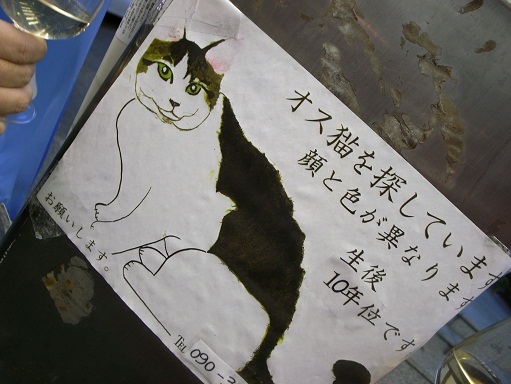 オス猫を探しています
顔と色が異なります
生後
10年位です
お願いします。
TEL 090-3